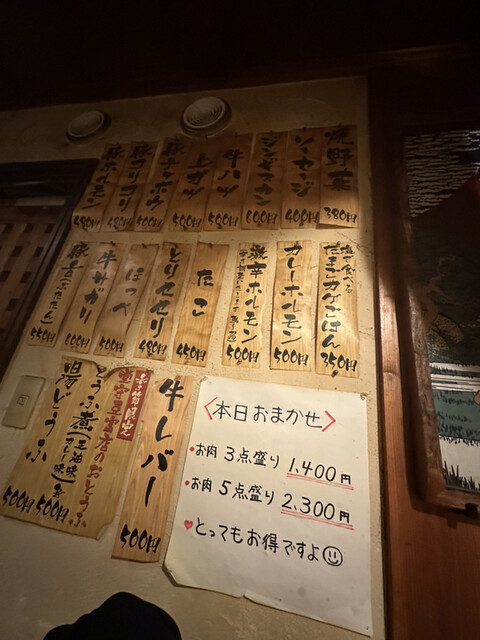 焼野菜 380円
ソーセージ 400円
ジンギスカン 600円
牛ハツ 500円
上ガツ 500円
豚テッポウ 500円
豚コリコリ 480円
豚ホルモン 480円
塩で食べる
たまごかけごはん 350円
カレーホルモン 500円
激辛ホルモン
500円
たこ 450円
とりセセリ 480円
ほっぺ 500円
牛サガリ 600円
豚舌(ぶたたん) 550円
牛レバー 500円
とうふ煮(正油味・カレー味) 500円
湯どうふ 500円
〈本日おまかせ〉
・お肉 3点盛り 1,400円
・お肉 5点盛り 2,300円
♥とってもお得ですよ☺